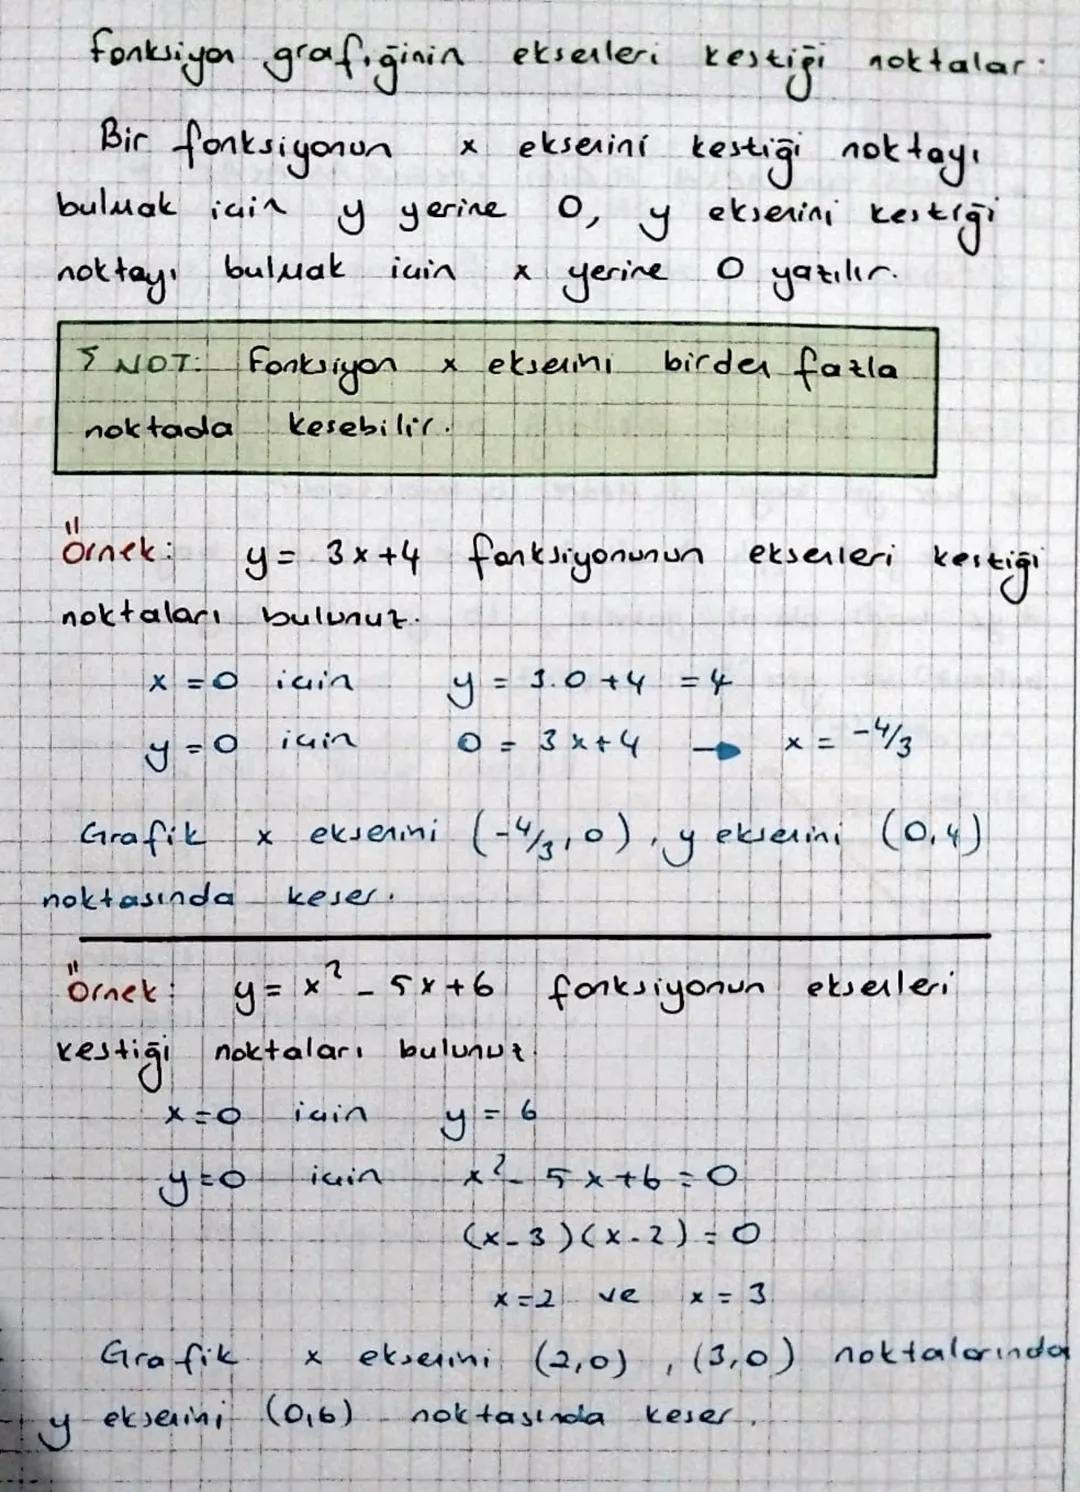 Fonksiyon grafiğinin eksenleri kestiği noktalar:
Bir fonksiyonun x eksenini kestiği noktayı
bulmak için y yerine 0, y eksenini kestiği
noktayı bulmak için x yerine 0 yazılır.
NOT: Fonksiyon x eksenini birden fazla
noktada kesebilir.
Örnek: y = 3x+4 fonksiyonunun eksenleri kestiği
noktaları bulunuz.
x = 0 için y = 3.0 +4 = 4
y = 0 için 0 = 3x+4 → x = -4/3
Grafik x eksenini (-4/3, 0), y eksenini (0,4)
noktasında keser.
Örnek: y = x² - 5x+6 fonksiyonun eksenleri
kestiği noktaları bulunuz.
x=0 için y = 6
y=0 için x² - 5x+6 = 0
(x-3)(x-2) = 0
x=2 ve x = 3
Grafik x eksenini (2,0), (3,0) noktalarında
y eksenini (0,6) noktasında keser.